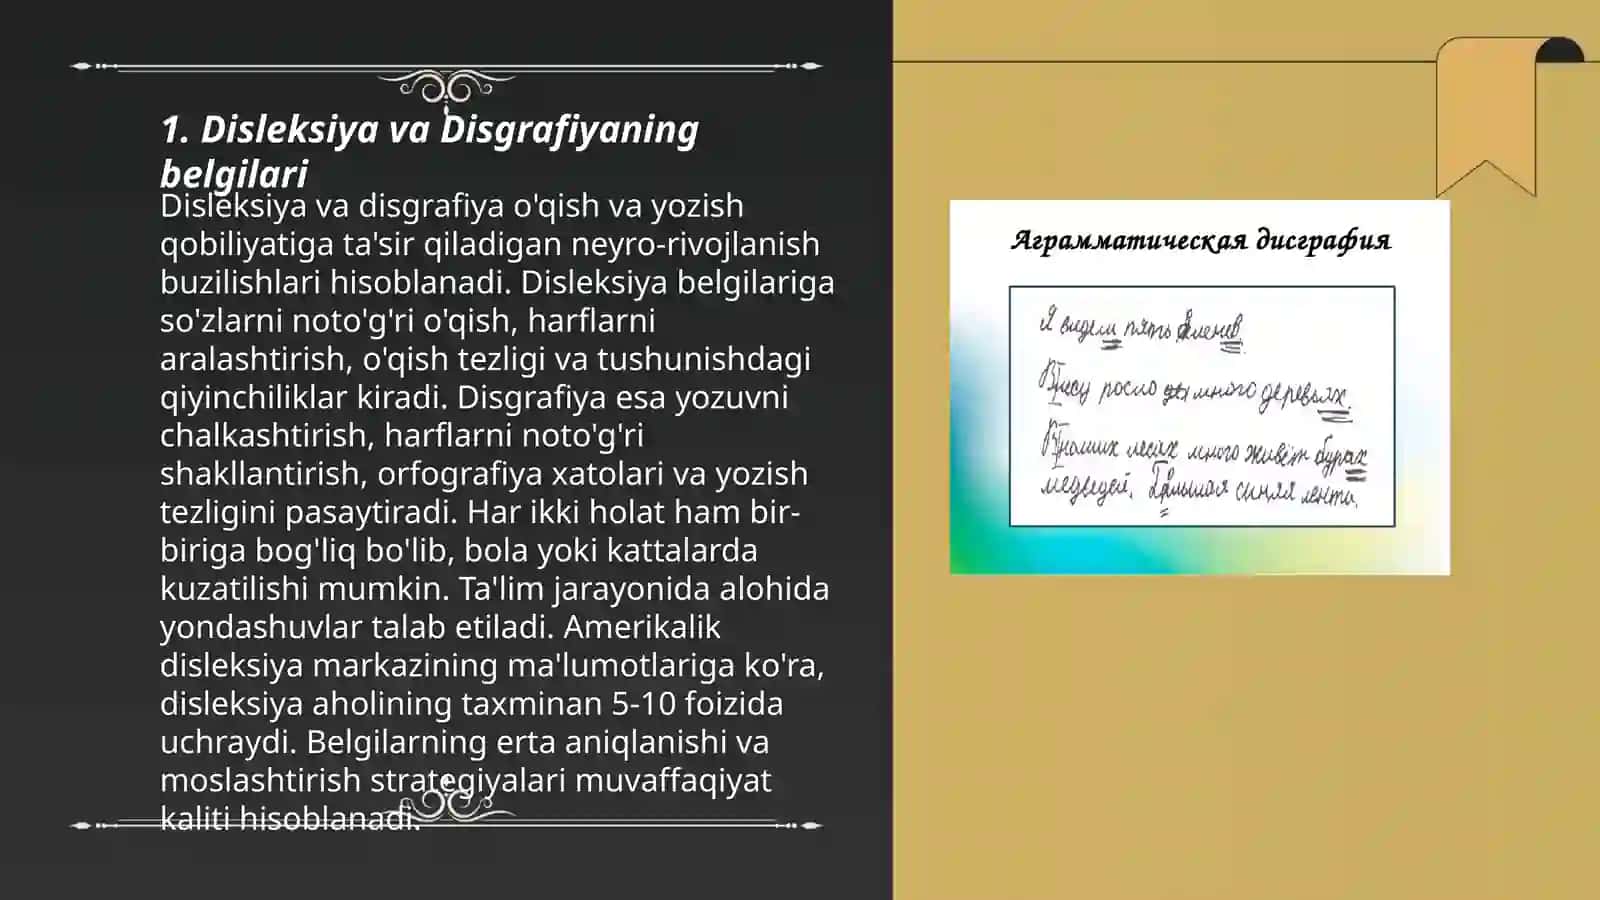 1. Disleksiya va Disgrafiyaning
belgilari
Disleksiya va disgrafiya o'qish va yozish
qobiliyatiga ta'sir qiladigan neyro-rivojlanish
buzilishlari hisoblanadi. Disleksiya belgilariga
so'zlarni noto'g'ri o'qish, harflarni
aralashtirish, o'qish tezligi va tushunishdagi
qiyinchiliklar kiradi. Disgrafiya esa yozuvni
chalkashtirish, harflarni noto'g'ri
shakllantirish, orfografiya xatolari va yozish
tezligini pasaytiradi. Har ikki holat ham bir-
biriga bog'liq bo'lib, bola yoki kattalarda
kuzatilishi mumkin. Ta'lim jarayonida alohida
yondashuvlar talab etiladi. Amerikalik
disleksiya markazining ma'lumotlariga ko'ra,
disleksiya aholining taxminan 5-10 foizida
uchraydi. Belgilarning erta aniqlanishi va
moslashtirish strategiyalari muvaffaqiyat
kaliti hisoblanadi.
Аграмматическая дисграфия
Я видем пять
росло много деревьях.
В наших лесах много живёт бурах
медведей. синяя лента.